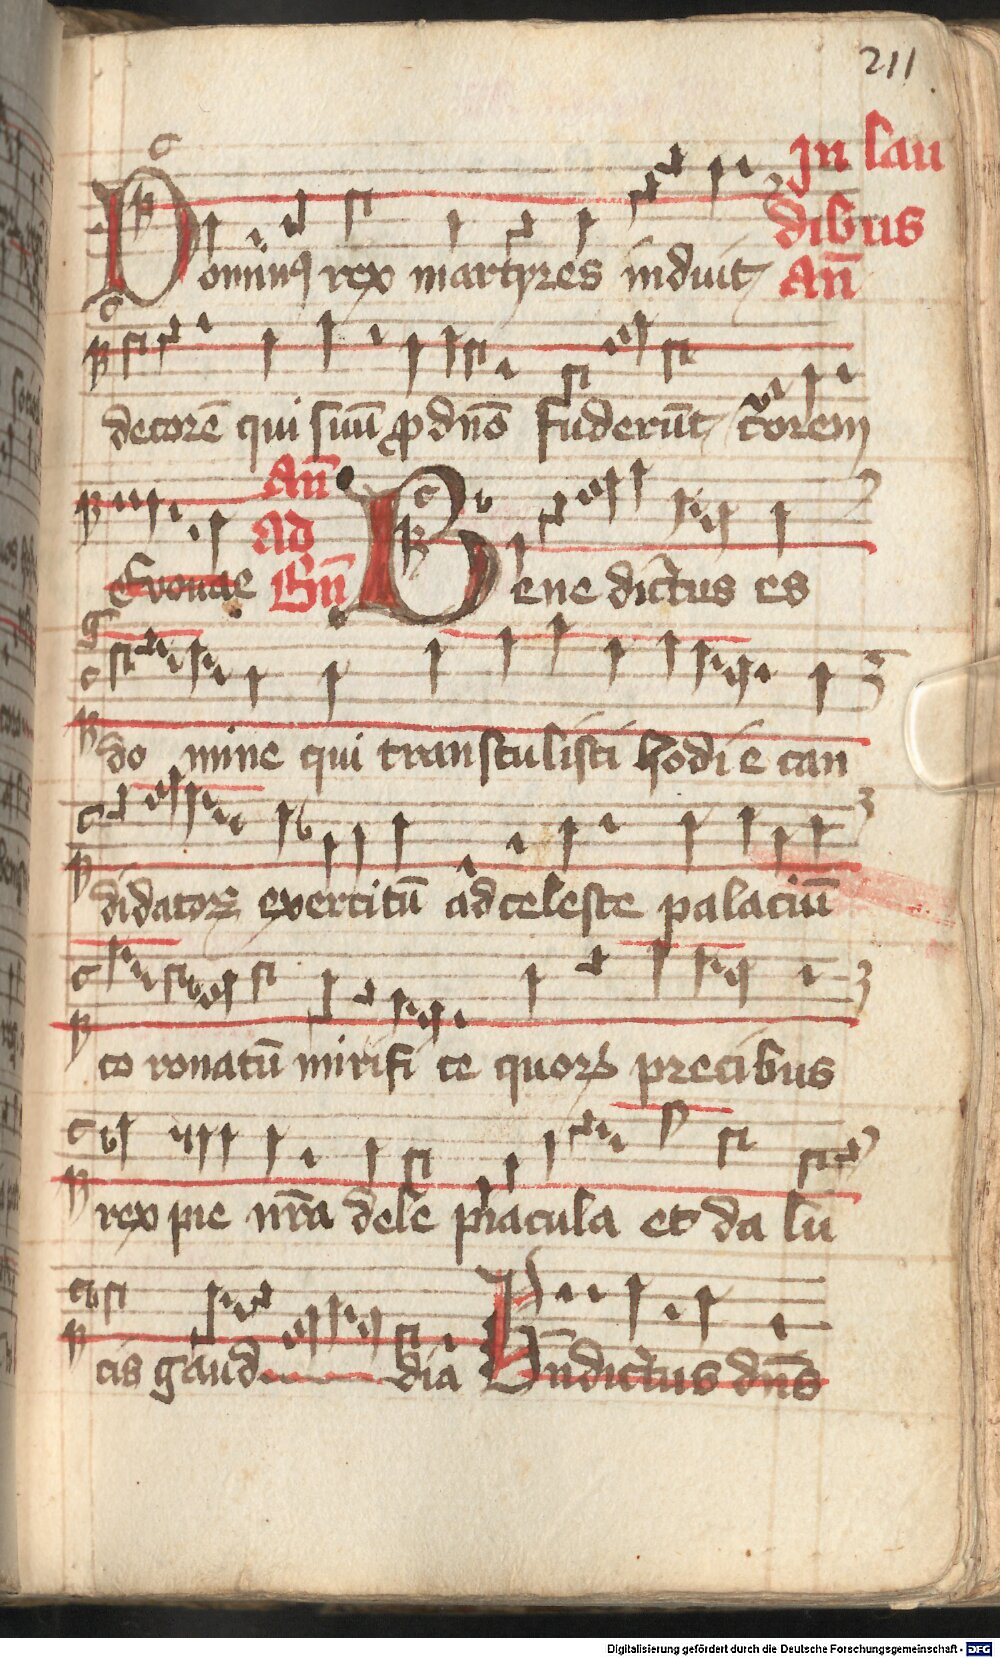 211
In lau
dibus
An̄
Dominꝰ rex martyres induit
decorē qui suū ꝓ dn̄o fuderūt cͮorem
An̄
Ad
Bn̄
Evouae Bene dictus es
do mine qui transtulisti hodie can
didatoꝝ exercitū ad celeste palaciū
co ronatū mirifi ce quoꝝ precibus
rex pie nr̄a dele piacula et da lu
cis gaud dia Bn̄dictus dn̄s
Digitalisierung gefördert durch die Deutsche Forschungsgemeinschaft - DFG